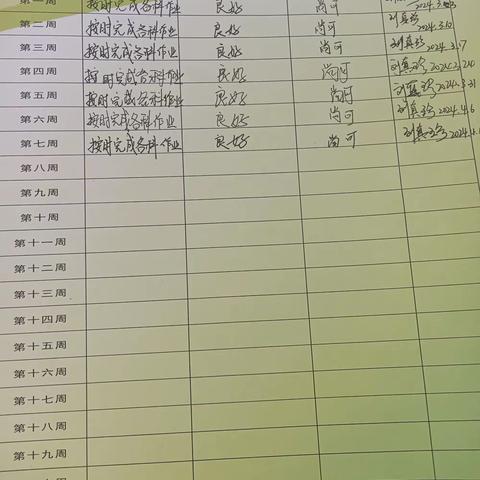 第一周 按时完成各科作业 良好 尚可
第二周 按时完成各科作业 良好 尚可 2024.3.10
第三周 按时完成各科作业 良好 尚可 2024.3.17
第四周 按时完成各科作业 良好 尚可 2024.3.24
第五周 按时完成各科作业 良好 尚可 2024.3.31
第六周 按时完成各科作业 良好 尚可 2024.4.6
第七周 按时完成各科作业 良好 尚可
第八周
第九周
第十周
第十一周
第十二周
第十三周
第十四周
第十五周
第十六周
第十七周
第十八周
第十九周